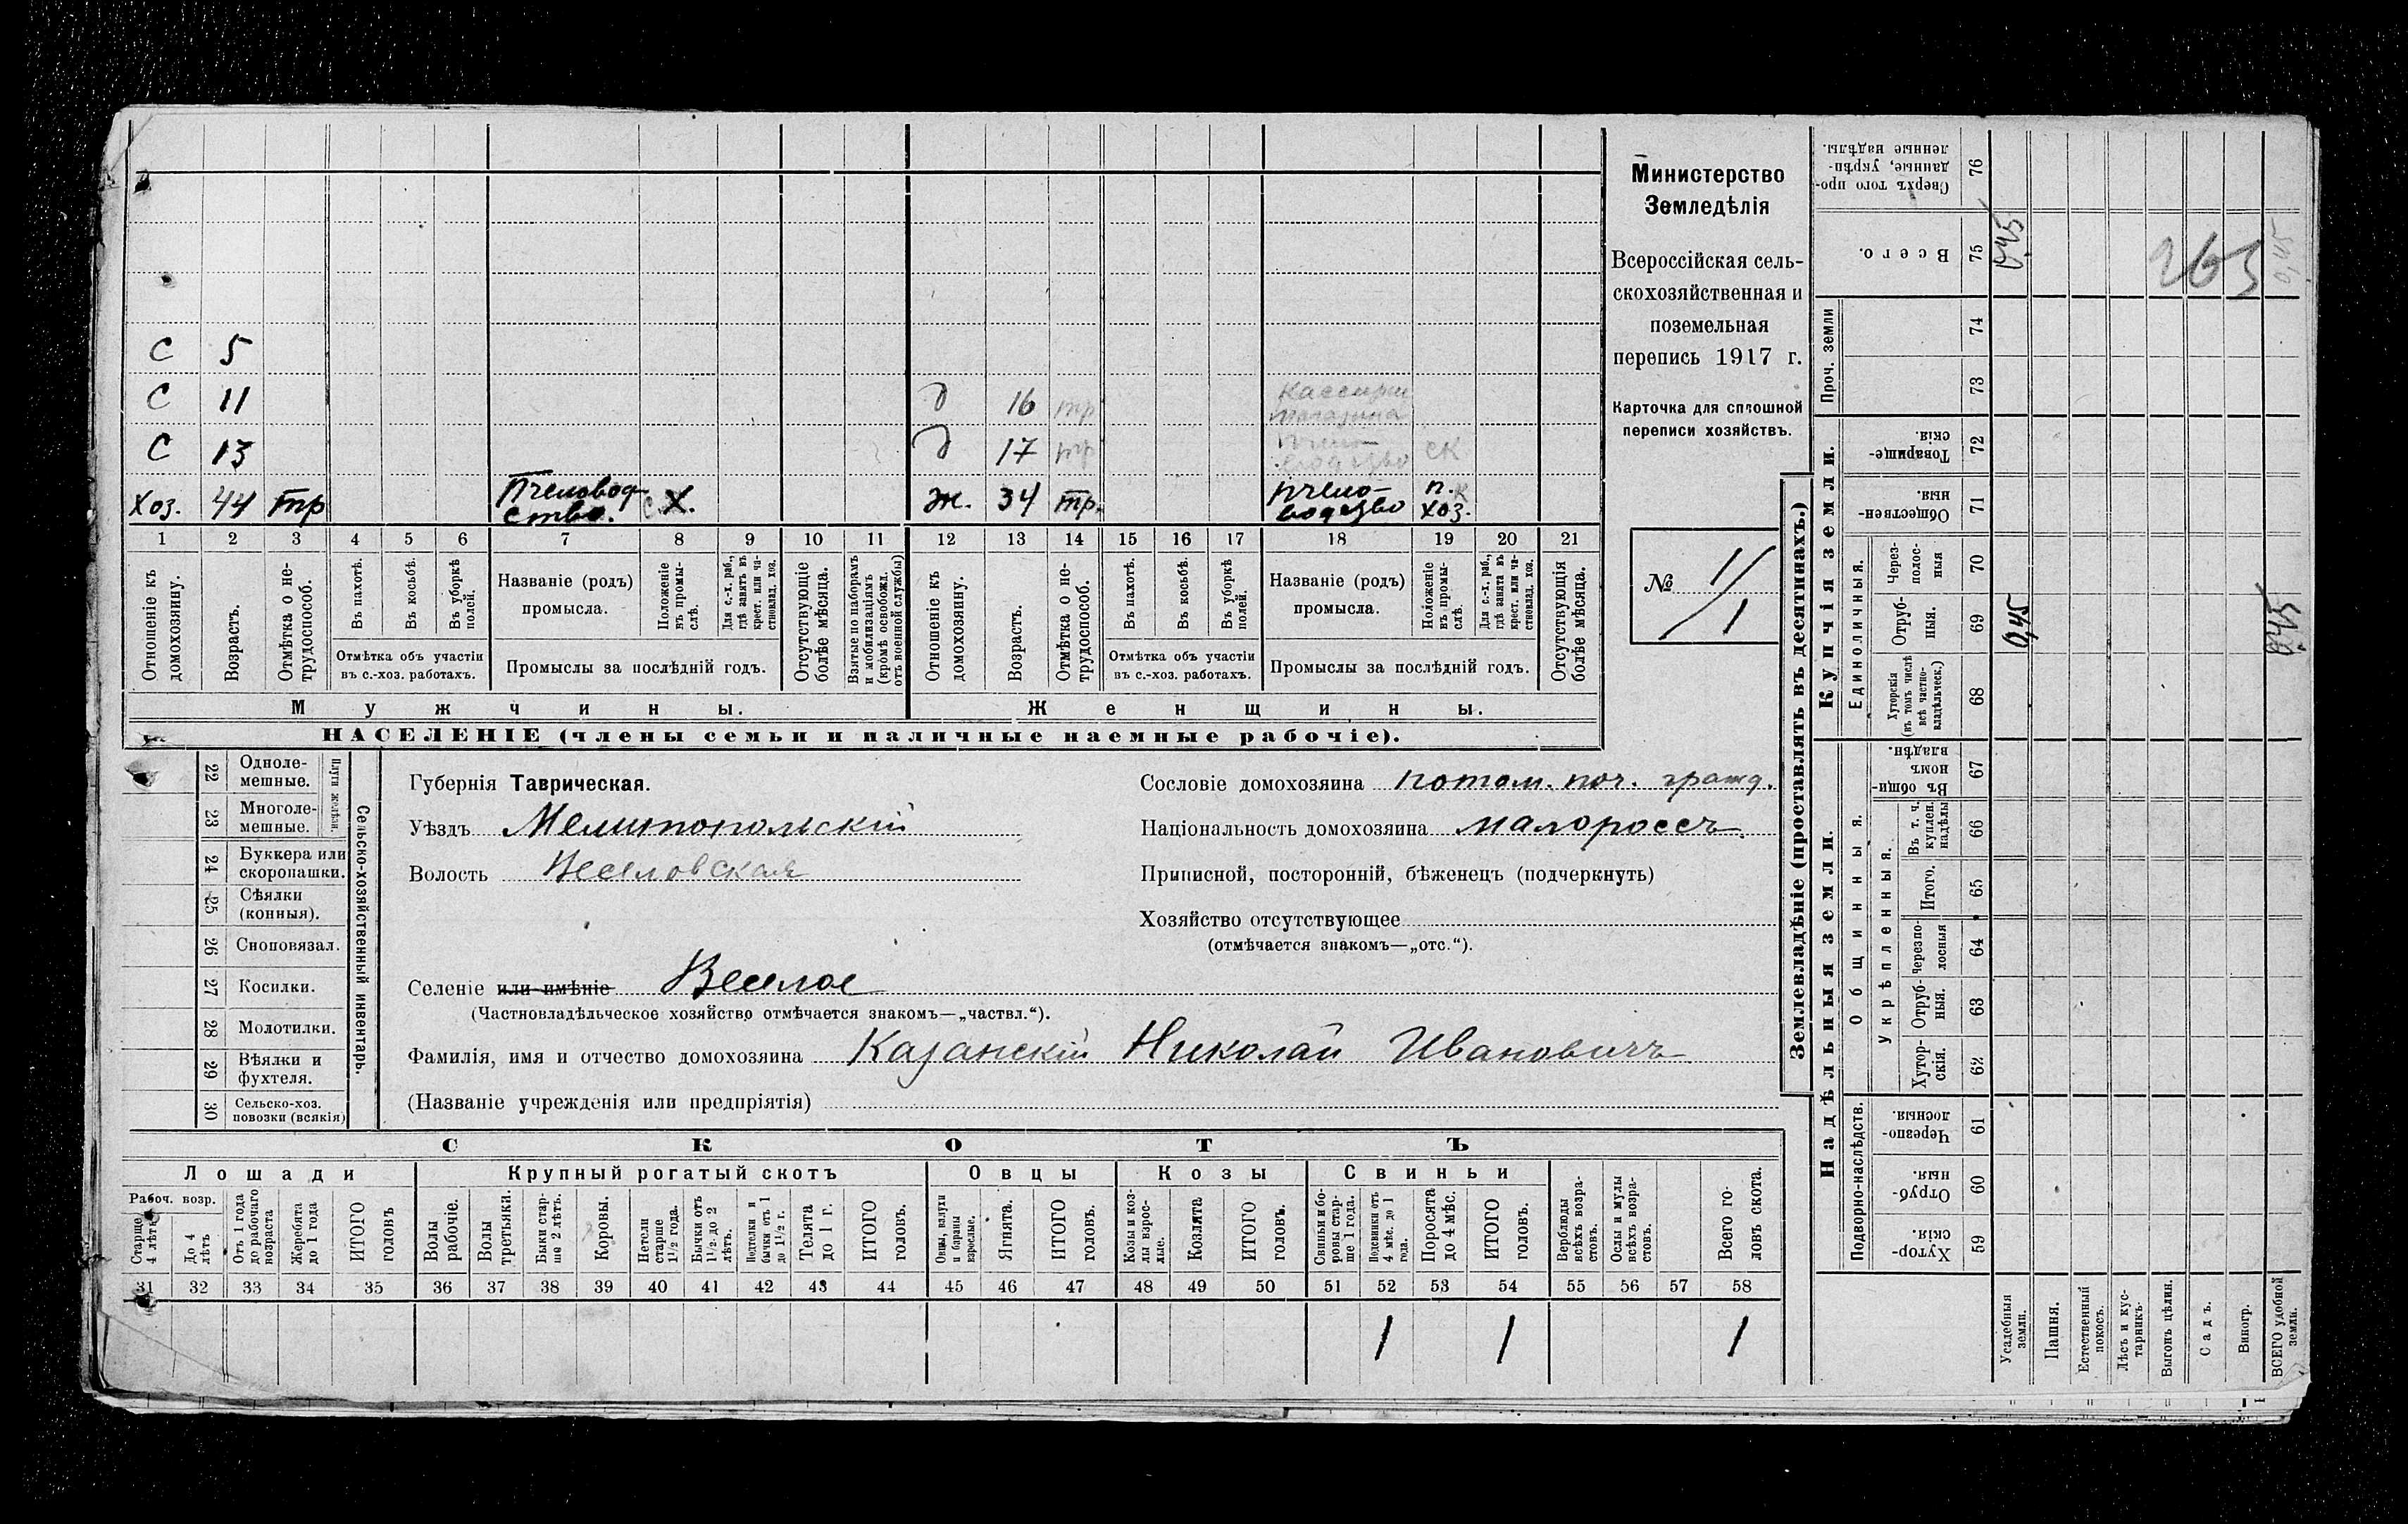 Министерство
Земледѣлія
Всероссійская сель-
скохозяйственная и
поземельная
перепись 1917 г.
Карточка для сплошной
переписи хозяйствъ.
№ 1/1
С 5
С 11 д 16 тр Кассирш магазина
С 13 д 17 тр пчело- водство ск
Хоз. 44 тр Пчеловод- ство. с.х. ж. 34 тр. пчело- водство п.к хоз.
1 2 3 4 5 6 7 8 9 10 11 12 13 14 15 16 17 18 19 20 21
Отношеніе къ домохозяину.
Возрастъ.
Отмѣтка о не-трудоспособ.
Въ пахотѣ.
Въ косьбѣ.
Въ уборкѣ полей.
Отмѣтка объ участіи
въ с.-хоз. работахъ.
Названіе (родъ)
промысла.
Положеніе въ промы-слѣ.
Для с.-х. раб., гдѣ занятъ въ крест. или ча-стновлад. хоз.
Промыслы за послѣдній годъ.
Отсутствующіе болѣе мѣсяца.
Взятые по наборамъ и мобилизаціямъ (кромѣ освобожд. отъ военной службы)
Отношеніе къ домохозяину.
Возрастъ.
Отмѣтка о не-трудоспособ.
Въ пахотѣ.
Въ косьбѣ.
Въ уборкѣ полей.
Отмѣтка объ участіи
въ с.-хоз. работахъ.
Названіе (родъ)
промысла.
Положеніе въ промы-слѣ.
Для с.-х. раб., гдѣ занята въ крест. или ча-стновлад. хоз.
Промыслы за послѣдній годъ.
Отсутствующія болѣе мѣсяца.
Мужчины. Женщины.
НАСЕЛЕНІЕ (члены семьи и наличные наемные рабочіе).
Сельско-хозяйственный инвентарь.
Плуги желѣзн.
22 Одноле-мешные.
23 Многоле-мешные.
24 Буккера или скоропашки.
25 Сѣялки (конныя).
26 Сноповязал.
27 Косилки.
28 Молотилки.
29 Вѣялки и фухтеля.
30 Сельско-хоз. повозки (всякія)
Губернія Таврическая.
Уѣздъ Мелитопольскій
Волость Веселовская
Сословіе домохозяина потом. поч. гражд.
Національность домохозяина малороссъ
Приписной, посторонній, бѣженецъ (подчеркнуть)
Хозяйство отсутствующее
(отмѣчается знакомъ—„отс.“).
Селеніе или имѣніе Веселое
(Частновладѣльческое хозяйство отмѣчается знакомъ—„частвл.“).
Фамилія, имя и отчество домохозяина Казанскій Николай Ивановичъ
(Названіе учрежденія или предпріятія)
СКОТЪ
Лошади Крупный рогатый скотъ Овцы Козы Свиньи
Рабоч. возр.
Старше 4 лѣтъ
До 4 лѣтъ
Отъ 1 года до рабочаго возраста
Жеребята до 1 года
ИТОГО головъ
Волы рабочіе.
Волы третьяки.
Быки стар-ше 2 лѣтъ.
Коровы.
Нетели старше 1½ года.
Бычки отъ 1½ до 2 лѣтъ.
Подтелки и бычки отъ 1 до 1½ г.
Телята до 1 г.
ИТОГО головъ.
Овцы, валухи и бараны взрослые.
Ягнята.
ИТОГО головъ.
Козы и коз-лы взрос-лые.
Козлята
ИТОГО головъ.
Свиньи и бо-ровы стар-ше 1 года.
Подсвинки отъ 4 мѣс. до 1 года.
Поросята до 4 мѣс.
ИТОГО головъ.
Верблюды всѣхъ возра-стовъ.
Ослы и мулы всѣхъ возра-стовъ.
Всего го-ловъ скота.
31 32 33 34 35 36 37 38 39 40 41 42 43 44 45 46 47 48 49 50 51 52 53 54 55 56 57 58
1 1 1
Землевладѣніе (проставлять въ десятинахъ.)
Сверхъ того про-данные, укрѣп-ленные надѣлы. 76
Всего. 75 0,45 263 0,45
Купчія земли.
Проч. земли 74
73
Товарище-скія. 72
Обществен-ныя. 71
Единоличныя.
Через-полос-ныя 70
Отруб-ныя. 69 0,45 0,45
Хуторскія (въ томъ числѣ всѣ частно-владѣльческ.) 68
Надѣльныя земли.
Общинныя.
Въ общи-номъ владѣн. 67
Укрѣпленныя.
Въ т. ч. куплен. надѣлы 66
Итого. 65
Черезпо-лосныя 64
Отруб-ныя. 63
Хутор-скія. 62
Подворно-наслѣдств.
Черезпо-лосныя. 61
Отруб-ныя. 60
Хутор-скія. 59
Усадебныя земли.
Пашня.
Естественный покосъ.
Лѣсъ и кус-тарникъ.
Выгонъ цѣлин.
Садъ.
Виногр.
ВСЕГО удобной земли.